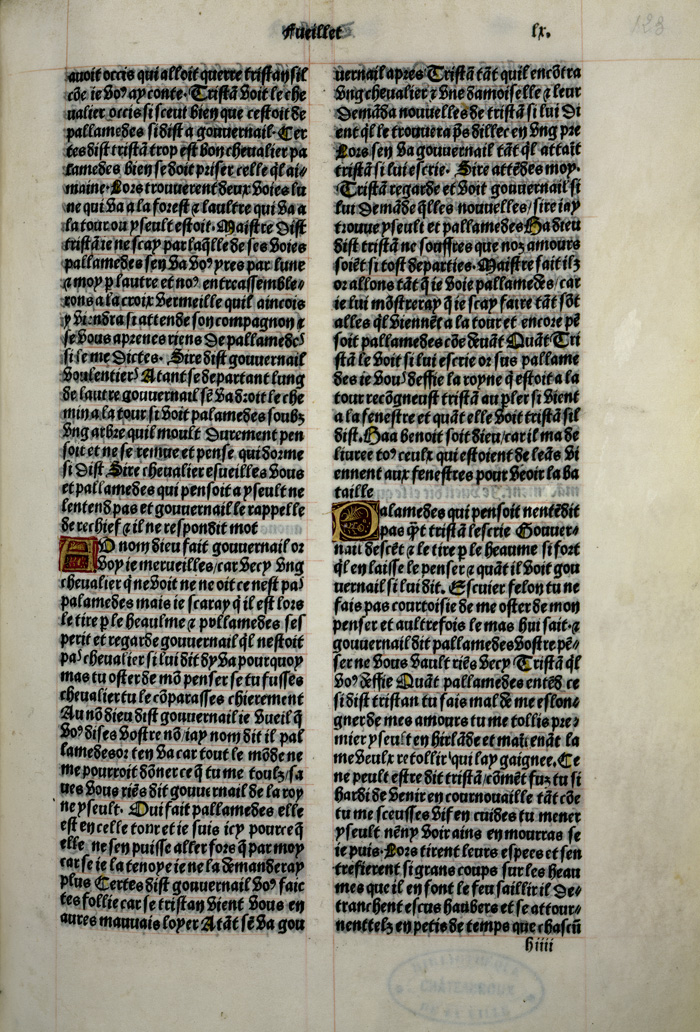 fueillet
lx.
123
auoit occis qui alloit querre tristan sil
cõe ie voꝰ ay conte. Tristã voit le che
ualier occis si sceut bien que cestoit de
pallamedes si dist a gouuernail. Cer
tes dist tristã trop est bon cheualier pa
lamedes bien se doit priser celle q̃l ai-
maine. Lors trouuerent deux voies lu
ne qui va a la forest ⁊ laultre qui va a
la tour ou yseult estoit. Maistre dist
tristã ie ne scay par laq̃lle de ses voies
pallamedes sen va voꝰ yres par lune
⁊ moy p lautre et noꝰ entrassemble-
rons a la croix vermeille quil aincois
y viendra si attende son compagnon ⁊
se vous aprenes riens de pallamedes
si le me dictes. Sire dist gouuernail
voulentiers Atant se departant lung
de lautre gouuernail sẽ va droit le che
min a la tour si voit palamedes soubz
vng arbre quil moult durement pen
soit et ne se remue et pense quidorme
si dist. Sire cheualier esueilles vous
et pallamedes qui pensoit a yseult ne
lentend pas et gouuernail le rappelle
de rechief ⁊ il ne respondit mot
AV nom dieu fait gouuernail or
voy ie merueilles/car vecy vng
cheualier q̃ ne voit ne ne oit ce nest paꝰ
palamedes mais ie scaray q̃ il est lors
le tire p le heaulme ⁊ pallamedes ses
perit et regarde gouuernail q̃l nestoit
paꝰ cheualier si lui dit dy va pourquoy
mas tu oster de mõ penser se tu fusses
cheualier tu le cõparasses chierement
Au nõ dieu dist gouuernail ie vueil q̃
voꝰ dises vostre nõ/iay nom dit il pal
lamedes or ten va car tout le mõde ne
me pourroit dõner ce q̃ tu me toulz/sa
ues vous riẽs dit gouuernail de la roy
ne yseult. Oui fait pallamedes elle
est en celle tour et ie suis icy pource q̃
elle ne sen puisse aller fors q̃ par moy
car se ie la tenoye ie ne la demanderay
plus Certes dist gouuernail voꝰ faic
tes follie car se tristan vient vous en
aures mauuais loyer Atãt se va gou
uernail apres Tristã tãt quil encõtra
vng cheualier ⁊ vne damoiselle ⁊ leur
demãda nouuelles de tristã si lui di
ent q̃l le trouuera p̃s dillec en vng pre
Lors sen va gouuernail tãt q̃l attait
tristã si lui escrie. Sire attẽdes moy.
Tristã regarde et voit gouuernail si
lui demãde q̃lles nouuelles/ sire iay
trouue yseult et pallamedes Ha dieu
dist tristã ne souffres que noz amours
soiẽt si tost departies. Maistre fait ilz
or allons tãt q̃ ie voie pallamedes/ car
ie lui mõstreray q̃ ie scay faire tãt sõt
alles q̃l viennẽt a la tour et encore pẽ
soit pallamedes cõe deuãt Quãt Tri
stã le voit si lui escrie or sus pallame
des ie voꝰ deffie la royne q̃ estoit a la
tour recõgneust tristã au p̱ler si vient
a la fenestre et quãt elle voit tristã sil
dist. Haa benoit soit dieu/car il ma de
liuree toꝰ ceulx qui estoient de leãs vi
ennent aux fenestres pour veoir la ba
taille
Palamedes qui pensoit nentẽdit
pas q̃t tristã lescrie Gouuer-
nail descẽt ⁊ le tire p le heaume si fort
q̃l en laisse le penser ⁊ quãt il voit gou
uernail si lui dit. Escuier felon tu ne
fais pas courtoisie de me oster de mon
penser et aultrefois le mas hui fait. ⁊
gouuernail dit pallamedes vostre pẽ-
ser ne vous vault riẽs vecy Tristã q̃l
voꝰ deffie Quãt pallamedes entẽd ce
si dist tristan tu fais mal de me eslon-
gner de mes amours tu me tollis pre-
mier yseult en hirlãde et maitenãt la
me veulx retollir qui lay gaignee. Ce
ne peult estre dit tristã/cõmẽt fuz tu si
hardi de venir en cournouaille tãt cõe
tu me sceusses vif en cuides tu mener
yseult nẽny voir ains en mourras se
ie puis. Lors tirent leurs espees et sen
trefierent si grans coups sur les heau
mes que il en font le feu saillir il de-
tranchent escus haubers et se attour-
nent telz en petis de temps que chascũ
h iiii